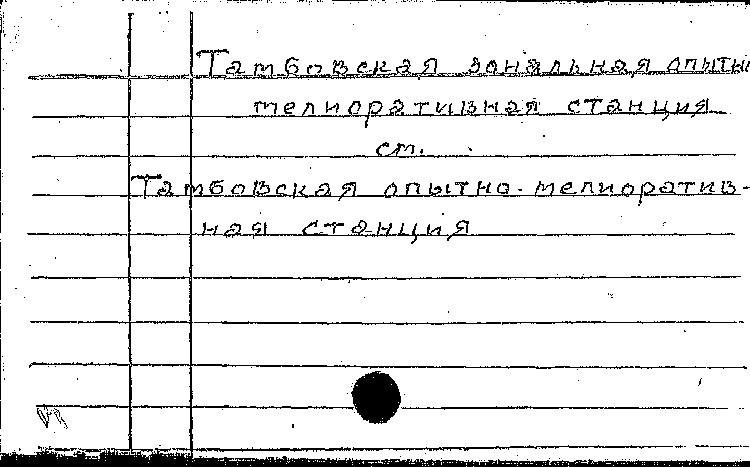 Тамбовская зональная опытно
мелиоративная станция
см.
Тамбовская опытно-мелиоратив-
ная станция